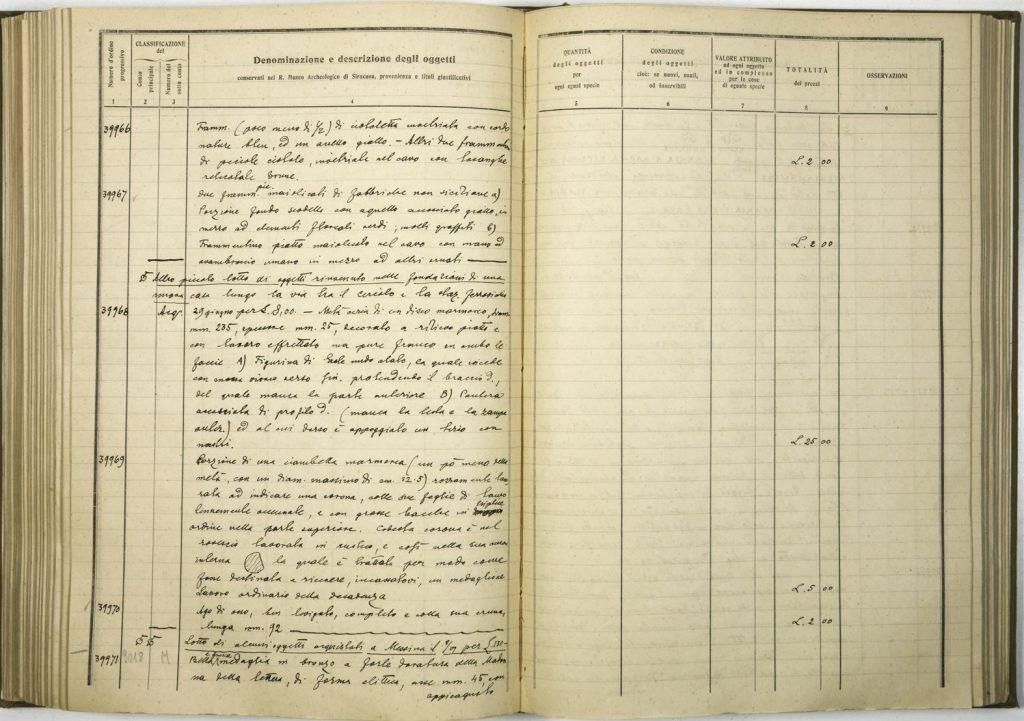 Numero d'ordine progressivo
CLASSIFICAZIONE
del
Conto principale
Numero del sotto conto
Denominazione e descrizione degli oggetti
conservati nel R. Museo Archeologico di Siracusa, provenienza e titoli giustificativi
QUANTITÀ
degli oggetti
per
ogni egual specie
CONDIZIONE
degli oggetti
cioè: se nuovi, usati,
od inservibili
VALORE ATTRIBUITO
ad ogni oggetto
ed in complesso
per le cose
di eguale specie
TOTALITÀ
dei prezzi
OSSERVAZIONI
1 2 3 4 5 6 7 8 9
39966 Framm. (poco meno di 1/2) di ciotoletta invetriata con cordo
nature bleu, ed un anello giallo. — Altri due frammenti
di piccole ciotole, invetriate nel cavo con losanghe
reticolate brune. L. 2 00
39967 due framm. maiolicati di fabbriche non siciliane a)
Porzione fondo scodella con agnello accosciato giallo, in
mezzo ad elementi floreali verdi; molti graffiti b)
Frammentino piatto maiolicato nel cavo con mano ed L. 2 00
avambraccio umano in mezzo ad altri ornati
Altro piccolo lotto di oggetti rinvenuto nelle fondazioni di una
casa lungo la via tra il e la staz. ferroviaria
39968 29 giugno per L. 8,00. — Metà di un disco marmoreo, diam.
mm. 235, spessore mm. 25, decorato a rilievo piatto e
con lavoro affrettato ma pure franco in ambo le
faccie A) Figurina di nudo alato, la quale incede
con verso sin. protendendo il braccio d.,
del quale manca la parte anteriore B) Pantera
accosciata di profilo d. (manca la testa e la zampa
anter.) ed al cui dorso è appoggiato un tirso con
nastri. L. 25 00
39969 Porzione di una ciambella marmorea (un pò meno della
metà, con un diam. massimo di cm. 32.5) rozzamente lavo
rata ad indicare una corona, colle sue foglie di lauro
accennate, e con grosse bacche in triplice
ordine nella parte superiore. Codesta corona è nel
rovescio lavorata in rustico, e così nella sua
interna la quale è trattata per modo come
fosse destinata a ricevere, incassatovi, un medaglione
Lavoro ordinario della decadenza L. 5 00
39970 Ago di osso, ben levigato, completo e colla sua cruna,
lungo mm. 92 L. 2 00
Lotto di alcuni oggetti acquistati a Messina il per L.
39971 3018 M Bella medaglia in bronzo a forte doratura della Madon
na della lettera, di forma elittica, asse mm. 45, con
appiccagnolo